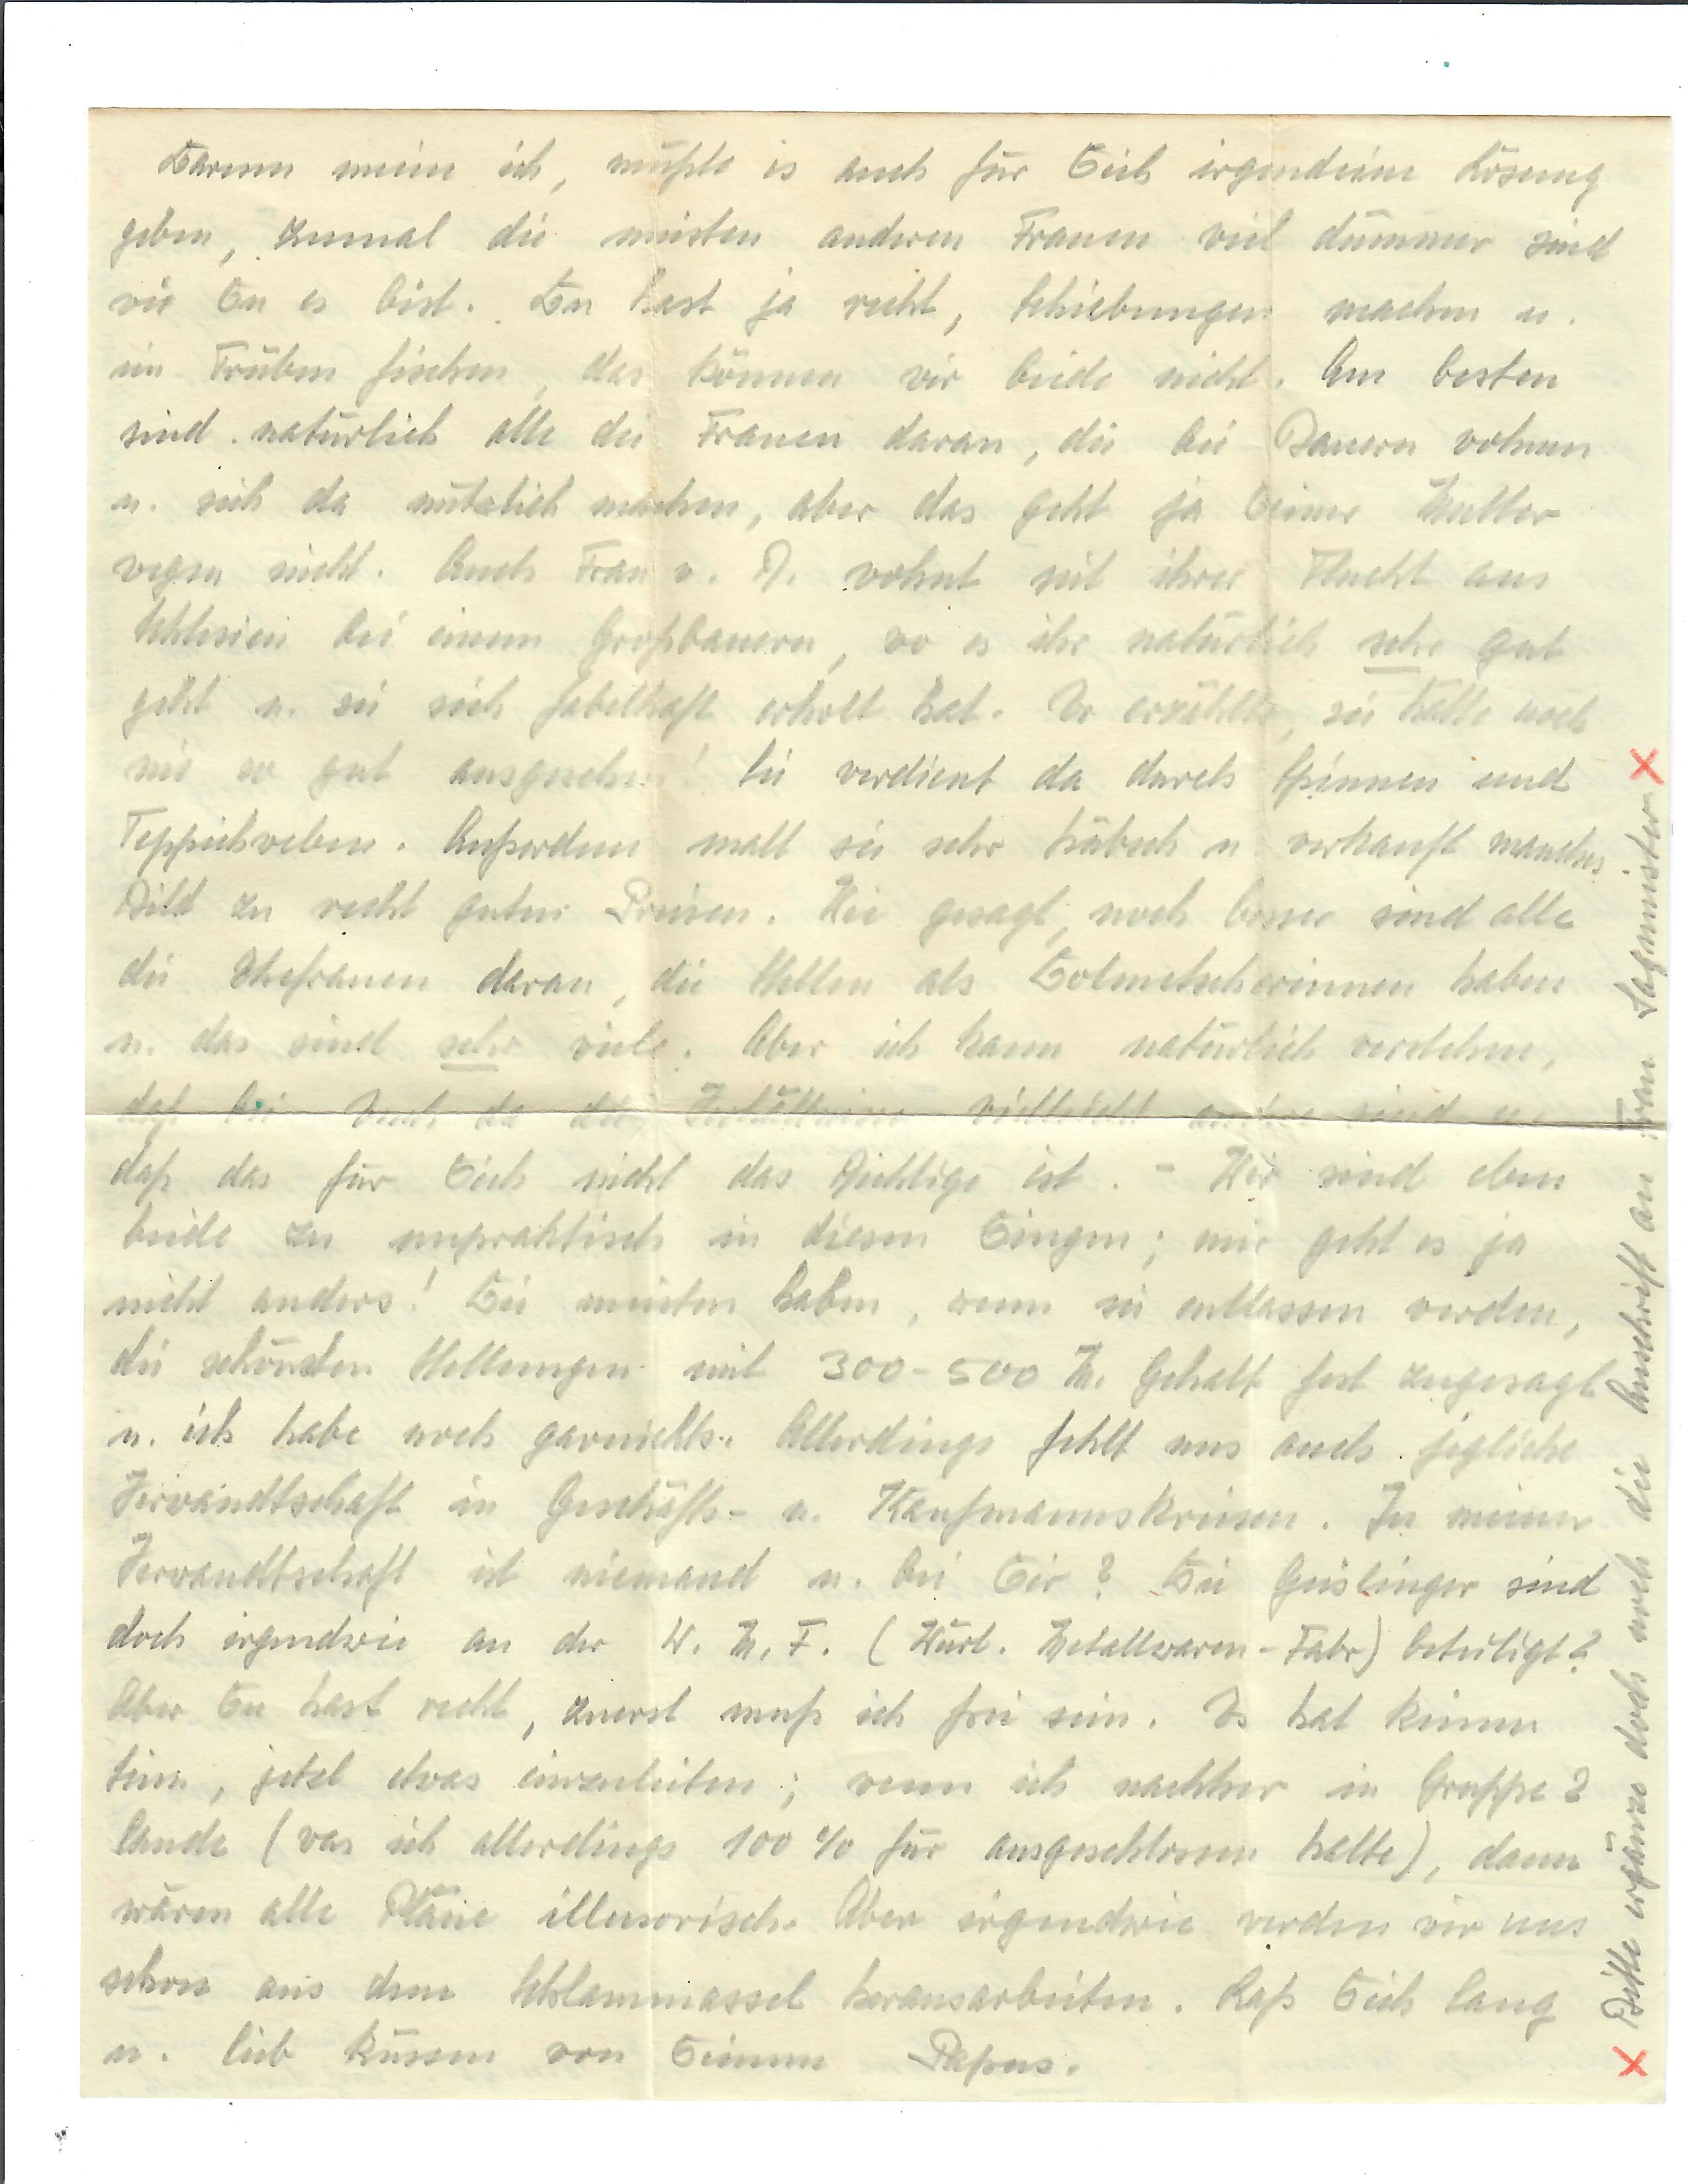 Darum meine ich, müßte es auch für Dich irgendeine Lösung
geben, zumal die meisten anderen Frauen viel dümmer sind
wie Du es bist. Du hast ja recht, Schiebungen machen u.
im Trüben fischen, das können wir beide nicht. Am besten
sind natürlich alle die Frauen daran, die bei Bauern wohnen
u. sich da nützlich machen, aber das geht ja Deiner Mutter
wegen nicht. Auch Frau v. B. wohnt seit ihrer Flucht aus
Schlesien bei einem Großbauern, wo es ihr natürlich sehr gut
geht u. sie sich fabelhaft erholt hat. Er erzählte, sie hätte noch
nie so gut ausgesehen! Sie verdient da durch Spinnen und
Teppichweben. Außerdem malt sie sehr hübsch u. verkauft manches
Bild zu recht guten Preisen. Wie gesagt, noch besser sind alle
die Ehefrauen daran, die Stellen als Dolmetscherinnen haben
u. das sind sehr viele. Aber ich kann natürlich verstehen,
daß bei Euch da die Verhältnisse vielleicht andere sind u.
daß das für Dich nicht das Richtige ist. - Wir sind eben
beide zu unpraktisch in diesen Dingen; mir geht es ja
nicht anders! Die meisten haben, wenn sie entlassen werden,
die schönsten Stellungen mit 300-500 M. Gehalt fest zugesagt
u. ich habe noch garnichts. Allerdings fehlt uns auch jegliche
Verwandtschaft in Geschäfts- u. Kaufmannskreisen. In meiner
Verwandtschaft ist niemand u. bei Dir? Die Geislinger sind
doch irgendwie an der W. M. F. (Würt. Metallwaren-Fabr) beteiligt?
Aber Du hast recht, zuerst muß ich frei sein. Es hat keinen
Sinn, jetzt etwas einzuleiten; wenn ich nachher in Gruppe 2
lande (was ich allerdings 100 % für ausgeschlossen halte), dann
wären alle Pläne illusorisch. Aber irgendwie werden wir uns
schon aus dem Schlammassel herausarbeiten. Laß Dich lang
u. lieb küssen von Deinem Papus.
x Bitte ergänze doch noch die Anschrift an Frau Sagemister x